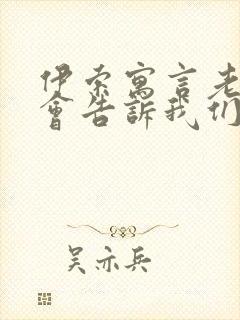 伊索寓言老
會告訴我们
吴亦兵